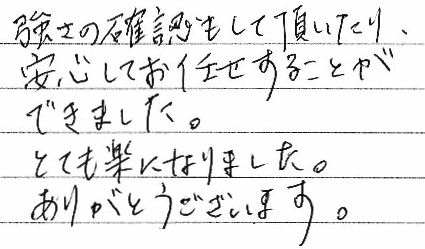 強さの確認もして頂いたり、
安心してお任せすることが
できました。
とても楽になりました。
ありがとうございます。